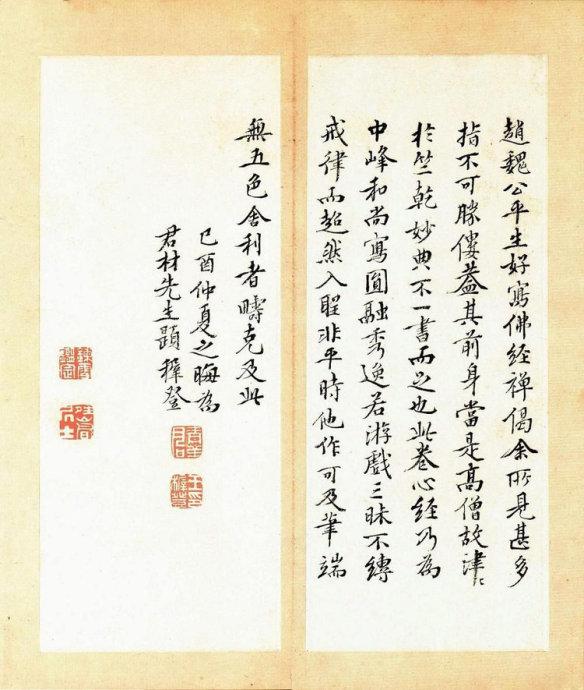 趙魏公平生好寫佛經禅偈余所見甚多
指不可勝僂葢其前身當是髙僧故津〻
於竺乾妙典不一書而足也此卷心經乃為
中峰和尚寫圓融秀逸若游戲三昧不縛
戒律而超然入聖非平時他作可及筆端
無五色舍利者疇克及此
己酉仲夏之晦為
君材先生題穉登